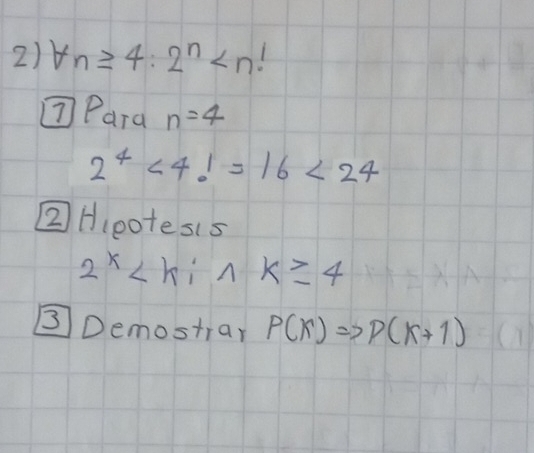 2) ∀n ≥ 4 : 2ⁿ < n!
1 Para n=4
2⁴ < 4! = 16 < 24
2 Hipotesis
2ᵏ < k¡ ∧ k ≥ 4
3 Demostrar P(k) => P(k+1)